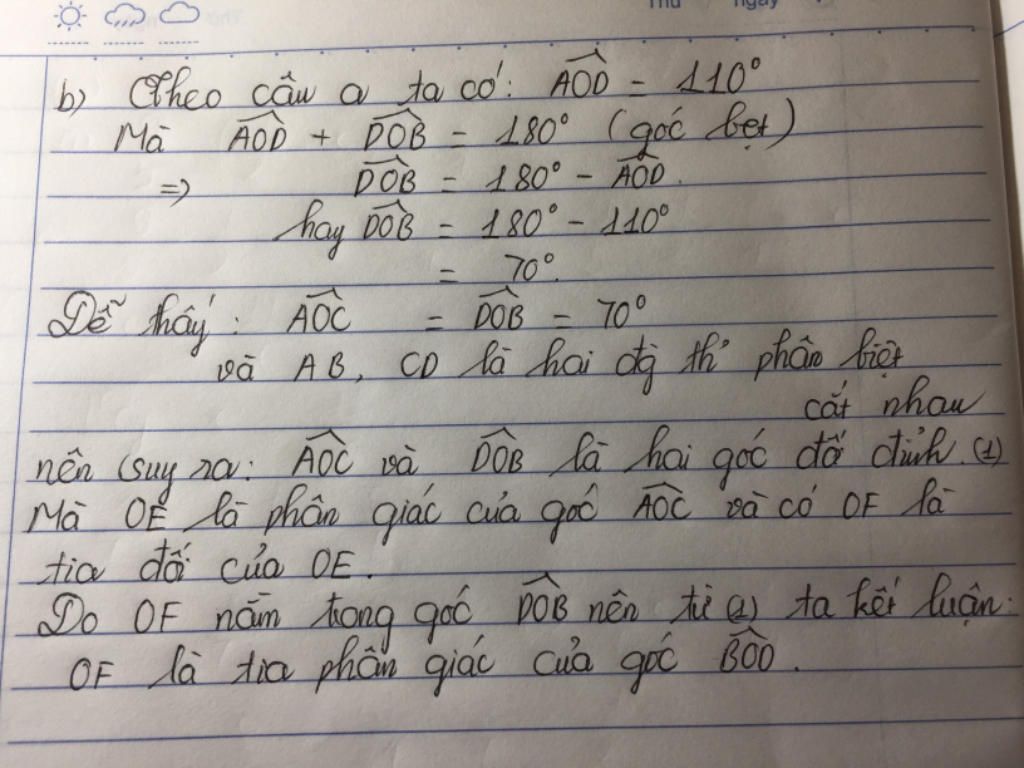 Thứ ngày
b) Theo câu a ta có: \widehat{AOD} = 110°
Mà \widehat{AOD} + \widehat{DOB} = 180° (góc bẹt)
=> \widehat{DOB} = 180° - \widehat{AOD}.
hay \widehat{DOB} = 180° - 110°
= 70°.
Dễ thấy: \widehat{AOC} = \widehat{DOB} = 70°
và AB, CD là hai đg th² phân biệt
cắt nhau
nên (suy ra: \widehat{AOC} và \widehat{DOB} là hai góc đối đỉnh. (1)
Mà OE là phân giác của góc \widehat{AOC} và có OF là
tia đối của OE.
Do OF nằm trong góc \widehat{DOB} nên từ (1) ta kết luận:
OF là tia phân giác của góc \widehat{BOD}.